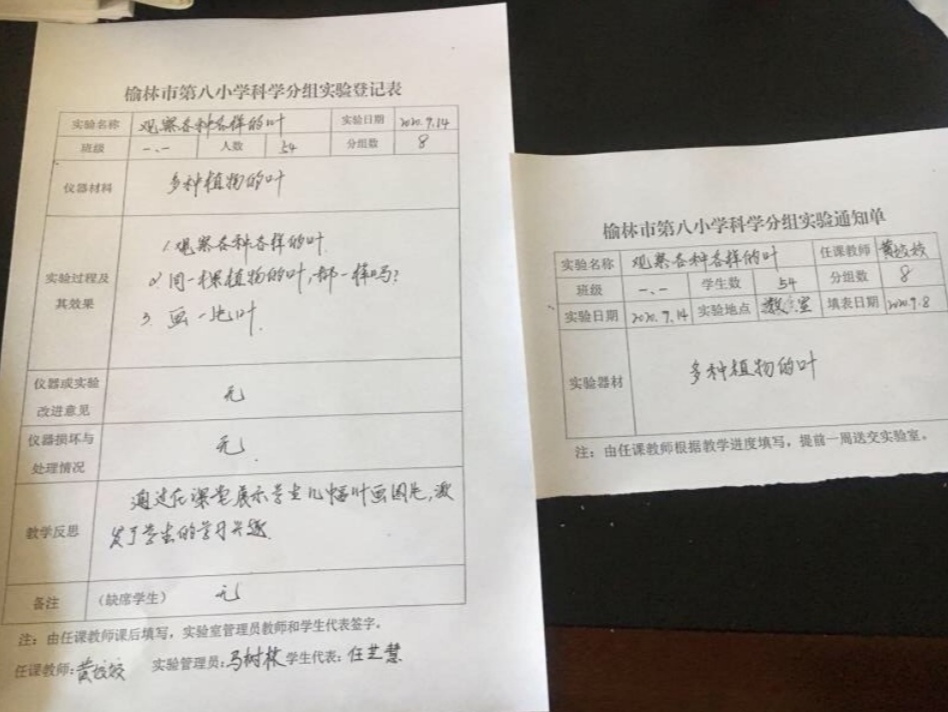 榆林市第八小学科学分组实验登记表
实验名称 观察各种各样的叶 实验日期 2020.9.14
班级 一.一 人数 54 分组数 8
仪器材料 多种植物的叶
实验过程及其效果
1.观察各种各样的叶
2.同一棵植物的叶,都一样吗?
3.画一片叶.
仪器或实验改进意见 无
仪器损坏与处理情况 无.
教学反思 通过在课堂展示学生几幅叶画图片,激
发了学生的学习兴趣.
备注 (缺席学生) 无
注:由任课教师课后填写,实验室管理员教师和学生代表签字。
任课教师:黄姣姣 实验管理员:马树林 学生代表:任芝慧
榆林市第八小学科学分组实验通知单
实验名称 观察各种各样的叶 任课教师 黄姣姣
班级 一.一 学生数 54 分组数 8
实验日期 2020.9.14 实验地点 教室 填表日期 2020.9.8
实验器材 多种植物的叶
注:由任课教师根据教学进度填写,提前一周送交实验室。